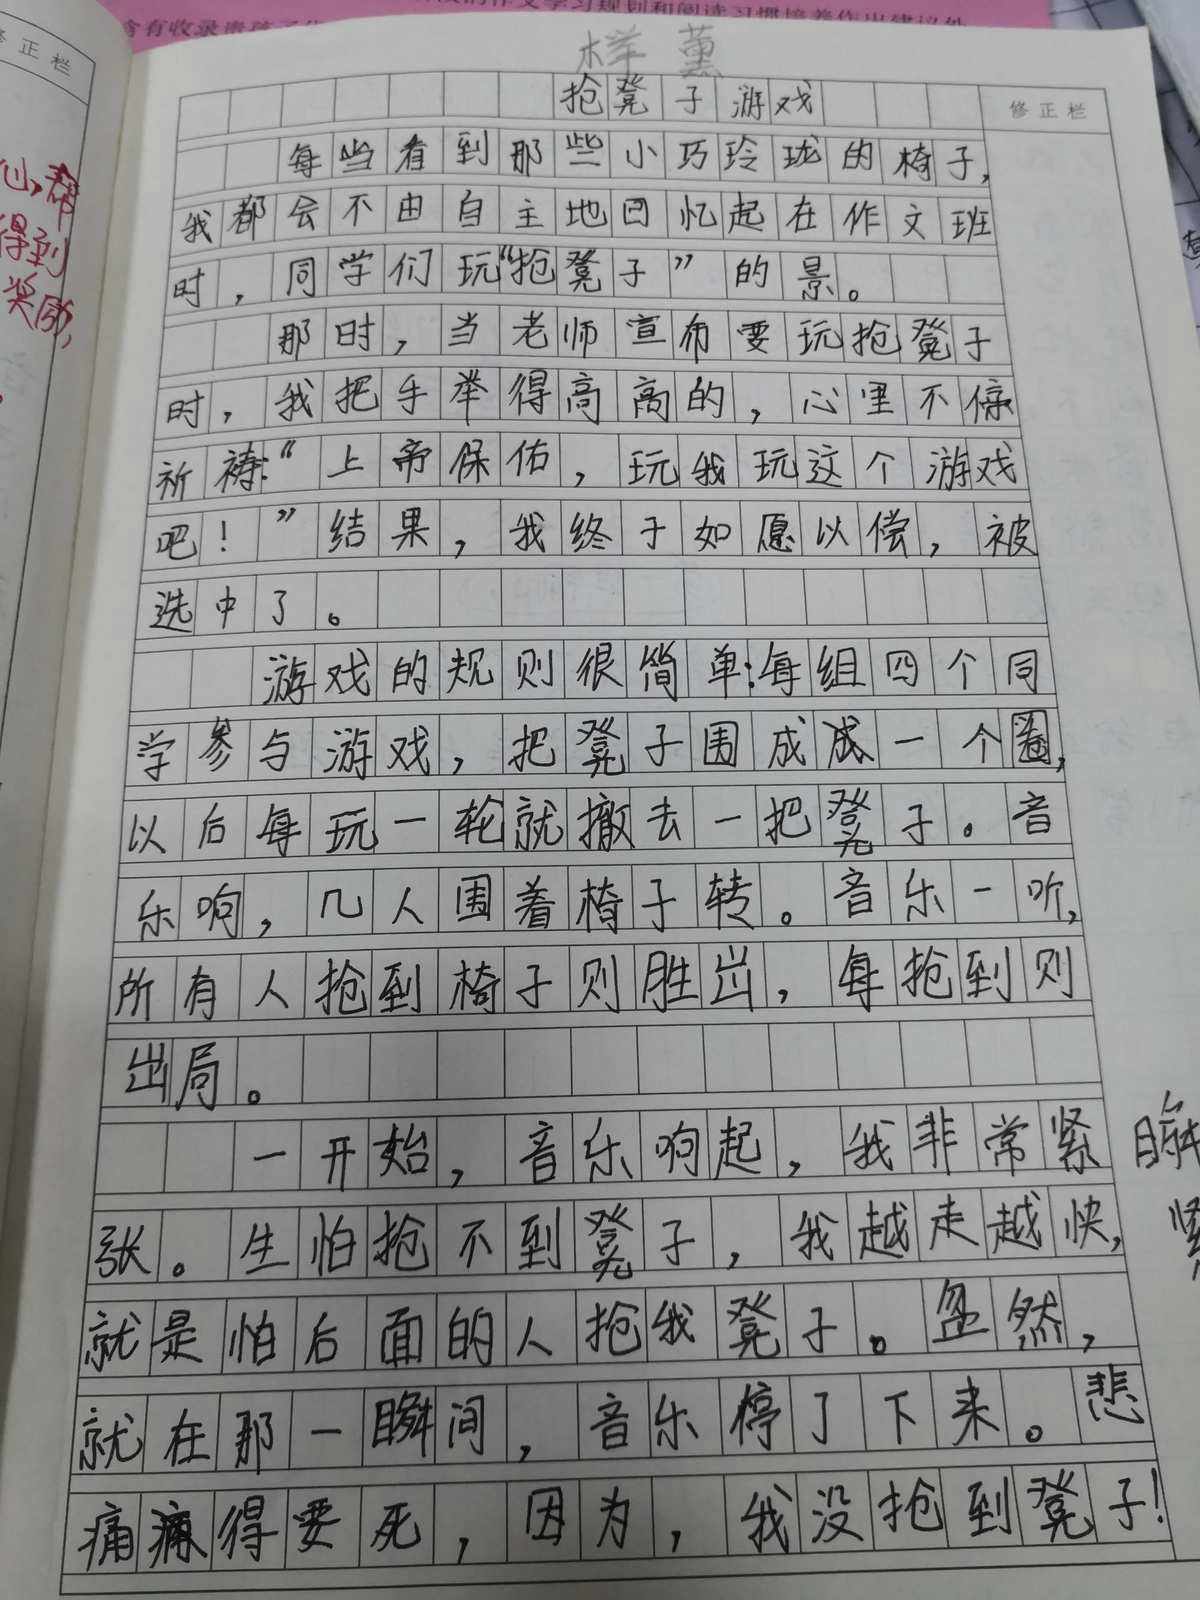 修正栏
得到
样薰
抢凳子游戏
修正栏
每当看到那些小巧玲珑的椅子,
我都会不由自主地回忆起在作文班
时，同学们玩“抢凳子”的景。
那时，当老师宣布要玩抢凳子
时，我把手举得高高的，心里不停
祈祷:“上帝保佑，玩我玩这个游戏
吧！”结果，我终于如愿以偿，被
选中了。
游戏的规则很简单:每组四个同
学参与游戏，把凳子围成成一个圈,
以后每玩一轮就撤去一把凳子。音
乐响，几人围着椅子转。音乐一听,
所有人抢到椅子则胜出，每抢到则
出局。
一开始，音乐响起，我非常紧
张。生怕抢不到凳子，我越走越快,
就是怕后面的人抢我凳子。忽然，
就在那一瞬间，音乐停了下来。悲
痛得要死，因为，我没抢到凳子!
瞬
紧